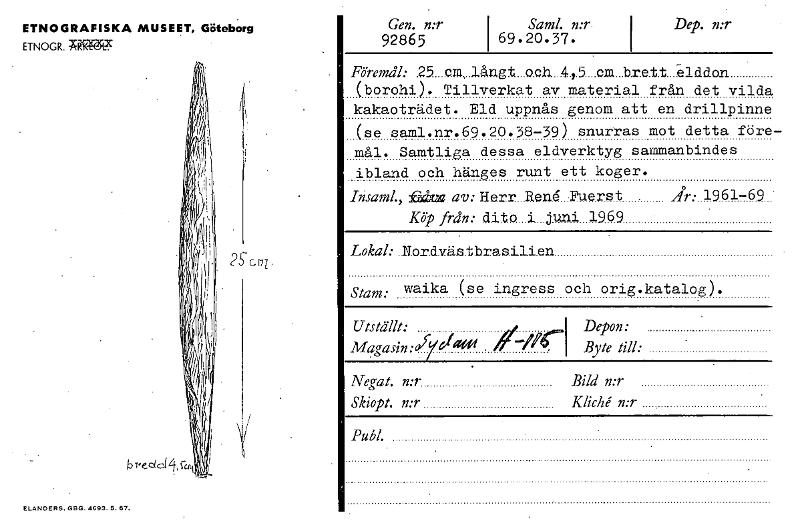 ETNOGRAFISKA MUSEET, Göteborg
ETNOGR. ARKEOL.
25 cm.
bredd 4,5cm
ELANDERS, GBG. 4693. 5. 67.
Gen. n:r Saml. n:r Dep. n:r
92865 69.20.37.
Föremål: 25 cm långt och 4,5 cm brett elddon
(borohi). Tillverkat av material från det vilda
kakaoträdet. Eld uppnås genom att en drillpinne
(se saml.nr.69.20.38-39) snurras mot detta före-
mål. Samtliga dessa eldverktyg sammanbindes
ibland och hänges runt ett koger.
Insaml., Gåva av: Herr René Fuerst År: 1961-69
Köp från: dito i juni 1969
Lokal: Nordvästbrasilien
Stam: waika (se ingress och orig.katalog).
Utställt: Depon:
Magasin: Sydam H-115 Byte till:
Negat. n:r Bild n:r
Skiopt. n:r Kliché n:r
Publ.